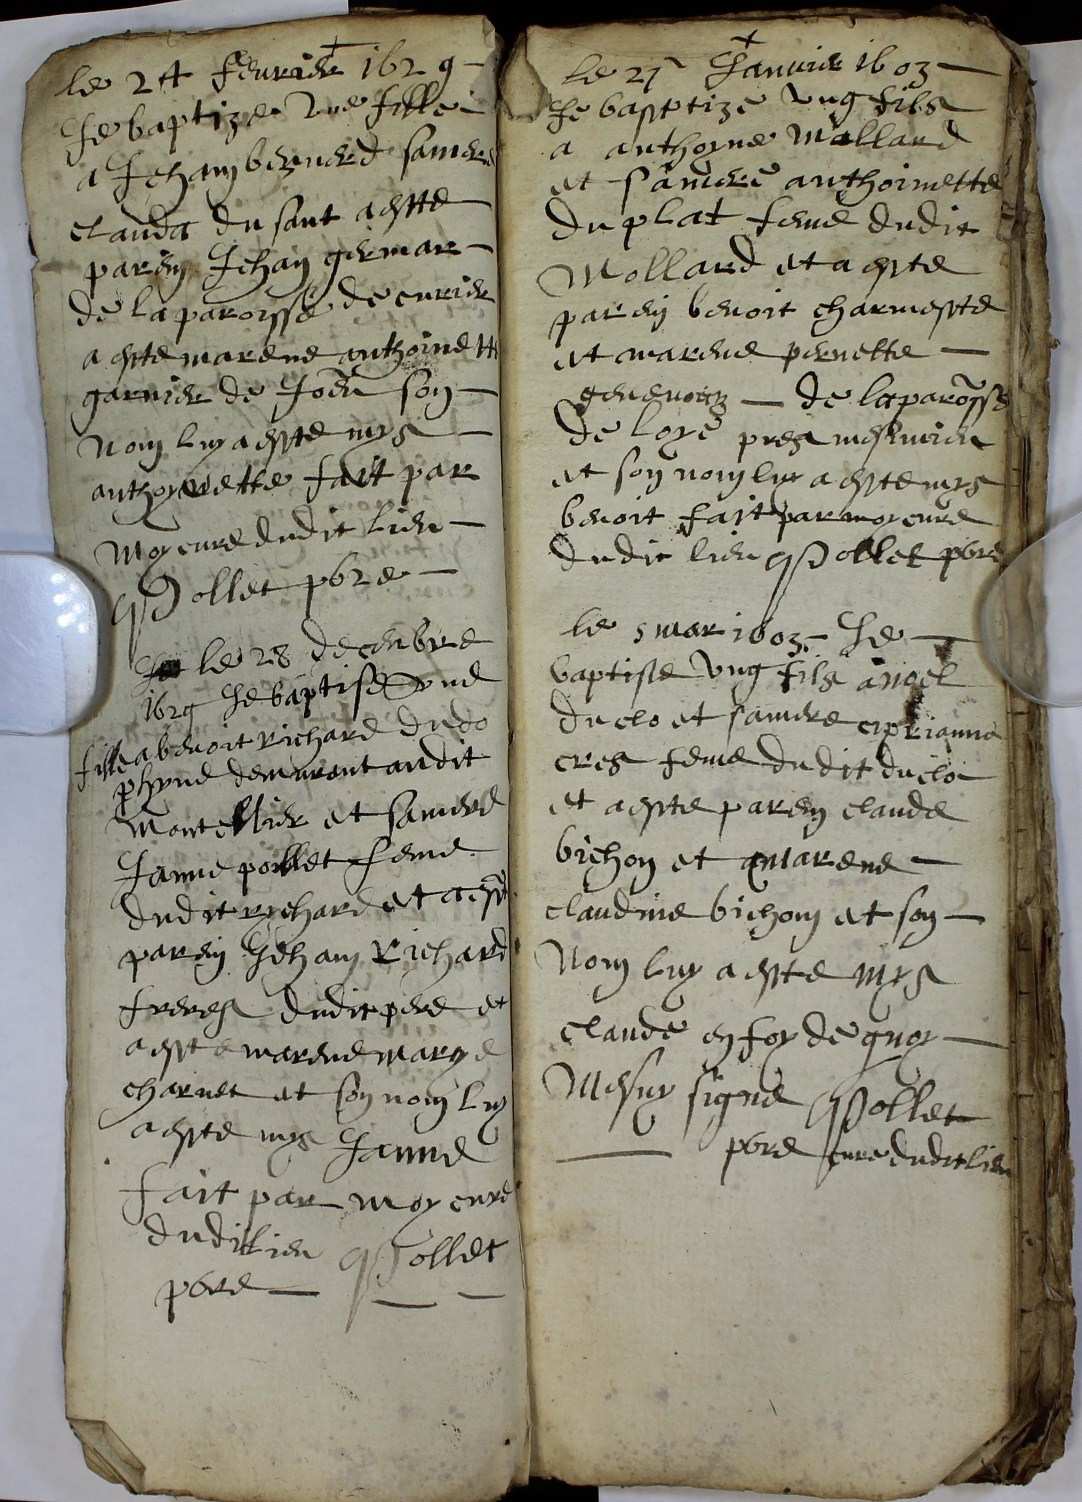 le 24 febvrier 1629
Je baptize une fille
a Jehan bernerd samere
clauda du sant a este
parein Jehan germar
de la paroisse de curier
a este marene anthoinett
garnier de son
nom luy a este mys
anthoynette fait par
moy cure dudit lieu
Pollet pbre
le 28 decembre
1629 Je baptise une
fille a benoit Richard dudo
phyne demurent audit
montellier et samere
Janne pollet feme
dudit richard et a este
parein Jehan Richard
freres dudit pere et
a este marene marye
charvet et son nom luy
a este mys Janne
fait par moy cure
dudit lieu Pollet
pbre
le 27 Janvier 1603
Je baptize ung fils
a anthoyne Mollard
et samere anthoinette
du plat feme dudit
Mollard et a este
parein benoit charmeste
et marene pernette
genevoiz de la paroisse
de loye pres
et son nom luy a este mys
benoit fait par moy cure
dudit lieu Pollet pbre
le 5 mar 1603 Je
baptise ung fils a noel
du clo et samere ciprianne
cres feme dudit du clo
et a este parein claude
bichon et marene
claudine bichon et son
nom luy a este mys
claude en foy de quoy
me suy signe Pollet
pbre cure dudit lieu